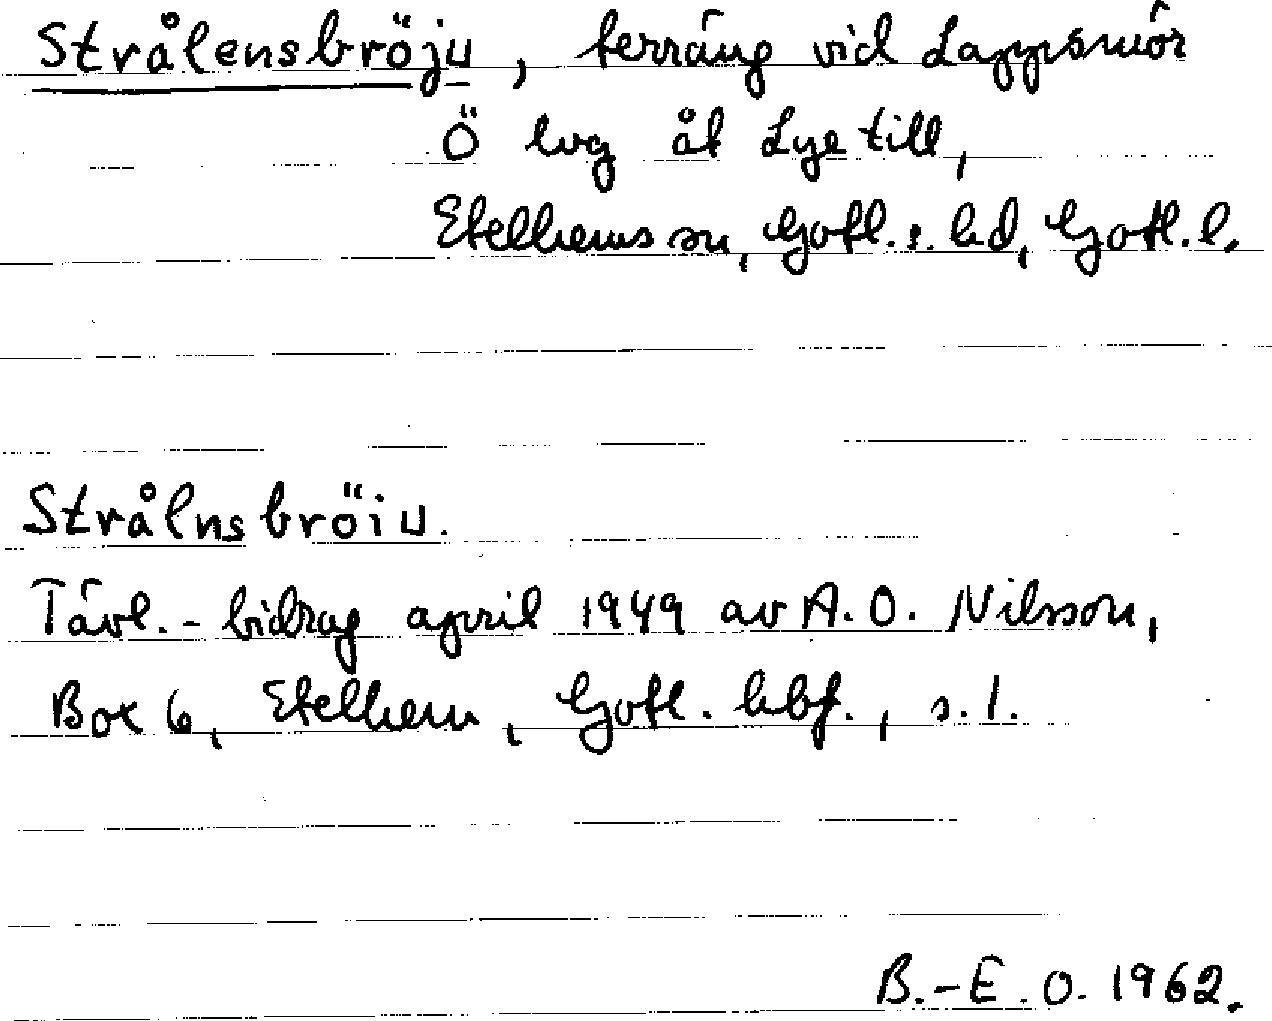 Strålensbröju, terräng vid Lappsmör
Ö lvg åt Lye till,
Etelhems sn, Gotl. s. hd, Gotl. l.
Strålnsbröiu.
Tävl.-bidrag april 1949 av A. O. Nilsson,
Box 6, Etelhem, Gotl. hbf., s. 1.
B.-E. O. 1962.